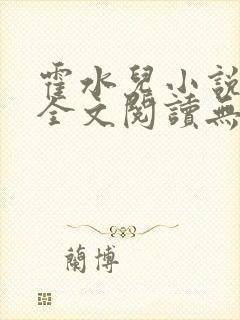 霍水兒小說
全文閱讀無
蘭博